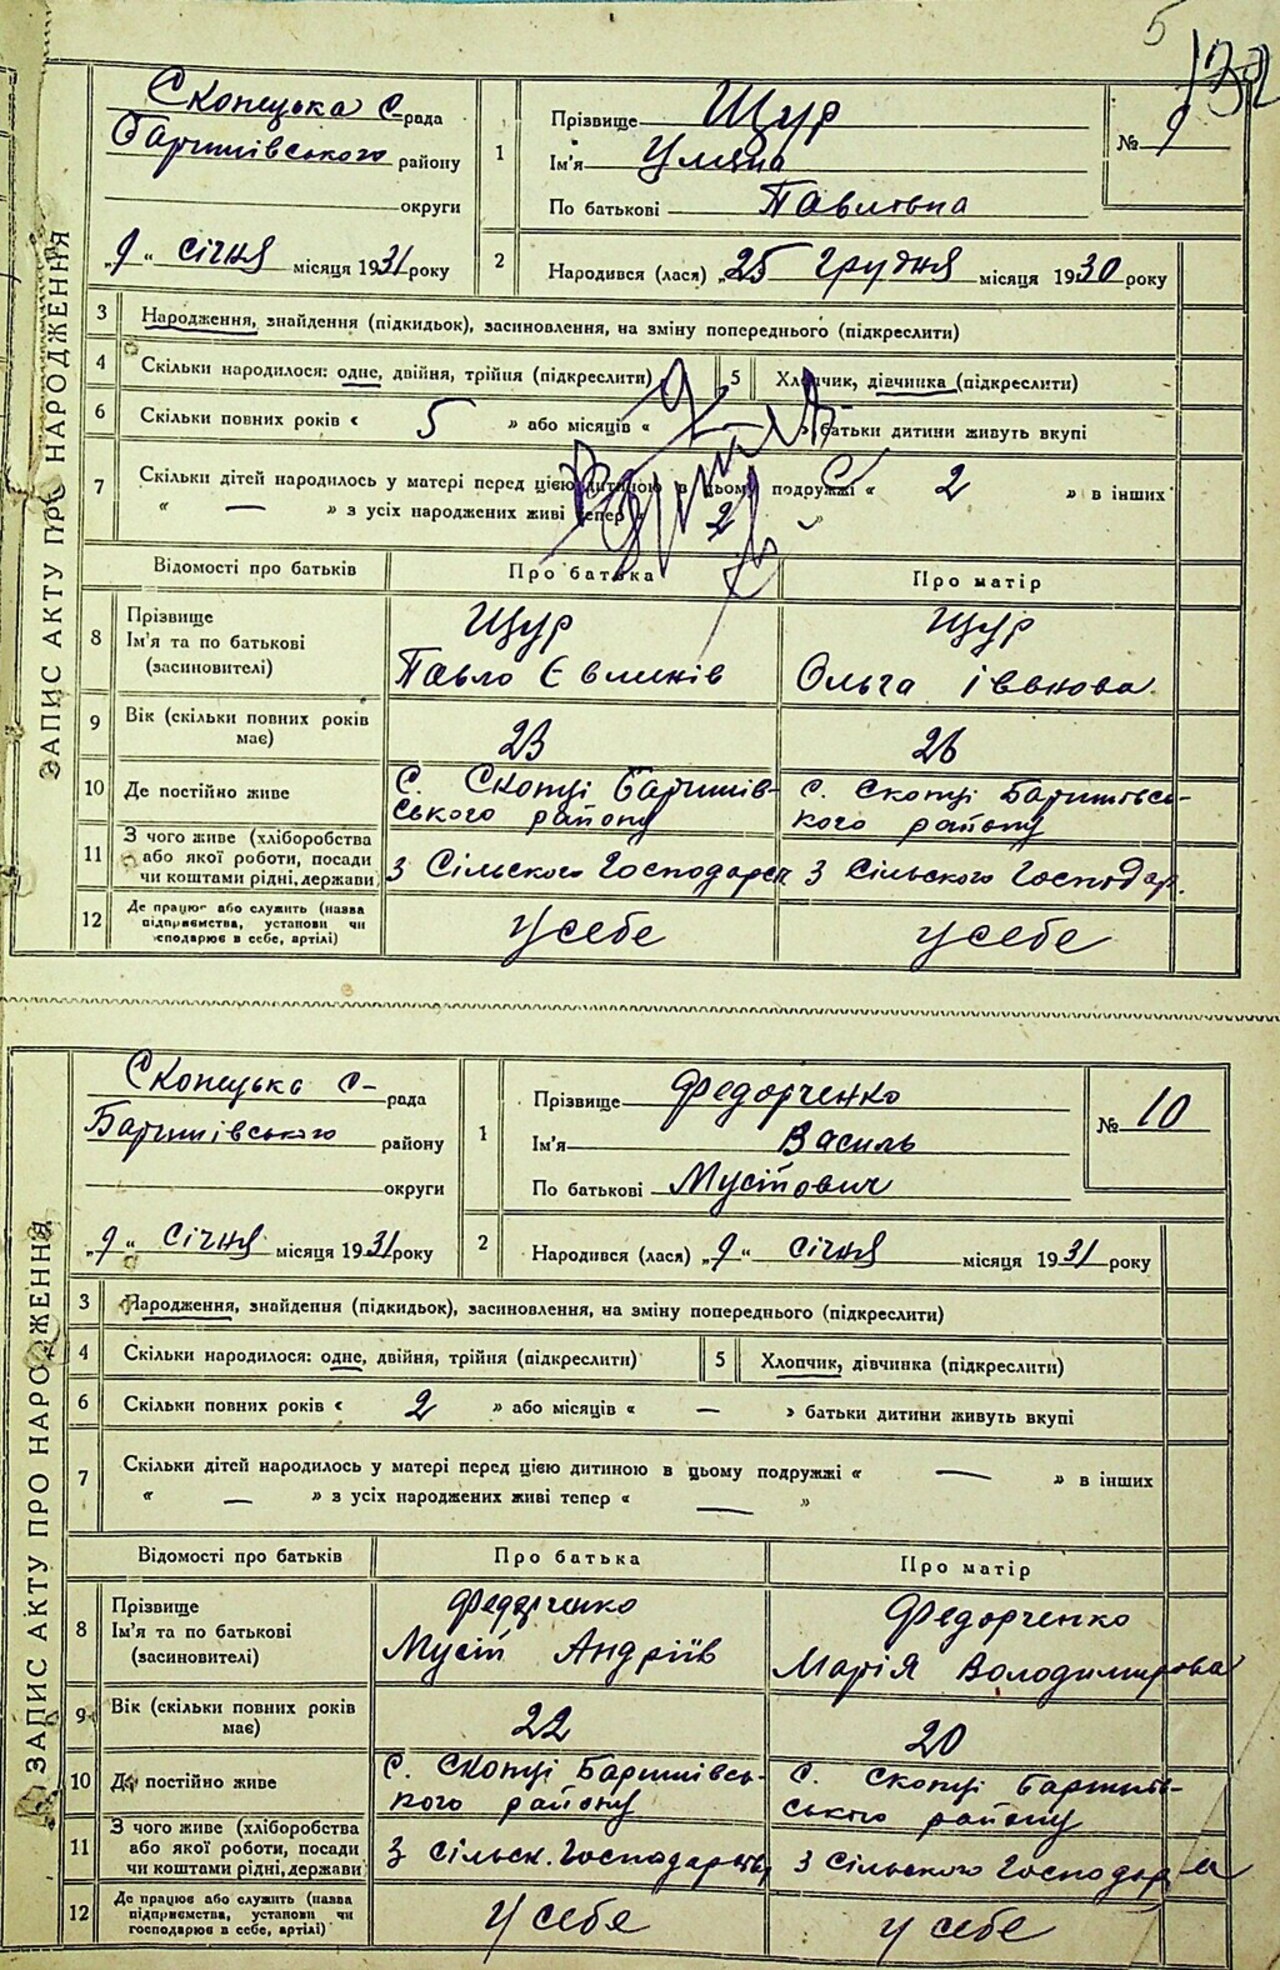 5
132
ЗАПИС АКТУ ПРО НАРОДЖЕННЯ
Скопецька С-рада
Баришівського району
округи
„9“ січня місяця 1931 року
1
Прізвище Щур
Ім'я Уляна
По батькові Павлівна
№ 9
2
Народився (лася) „25 Грудня місяця 1930 року
3
Народження, знайдення (підкидьок), засиновлення, на зміну попереднього (підкреслити)
4
Скільки народилося: одне, двійня, трійня (підкреслити)
5
Хлопчик, дівчинка (підкреслити)
6
Скільки повних років « 5 » або місяців « » батьки дитини живуть вкупі
7
Скільки дітей народилось у матері перед цією дитиною в цьому подружжі « 2 » в інших
« — » з усіх народжених живі тепер « 2 »
Відомості про батьків
Про батька
Про матір
8
Прізвище
Ім'я та по батькові
(засиновителі)
Щур
Павло Євликів
Щур
Ольга Іванова
9
Вік (скільки повних років
має)
23
26
10
Де постійно живе
С. Скопці Баришів-
ського району
с. Скопці Баришівсь-
кого району
11
З чого живе (хліборобства
або якої роботи, посади
чи коштами рідні, держави
З Сільского Господарст
З Сільского Господар.
12
Де працює або служить (назва
підприємства, установи чи
господарює в себе, артілі)
У себе
У себе
ЗАПИС АКТУ ПРО НАРОДЖЕННЯ
Скопецька С-
рада
Баришівського району
округи
„9“ Січня місяця 1931 року
1
Прізвище Федорченко
Ім'я Василь
По батькові Мусійович
№ 10
2
Народився (лася) „9“ січня місяця 1931 року
3
Народження, знайдення (підкидьок), засиновлення, на зміну попереднього (підкреслити)
4
Скільки народилося: одне, двійня, трійня (підкреслити)
5
Хлопчик, дівчинка (підкреслити)
6
Скільки повних років « 2 » або місяців « — » батьки дитини живуть вкупі
7
Скільки дітей народилось у матері перед цією дитиною в цьому подружжі « — » в інших
« — » з усіх народжених живі тепер « — »
Відомості про батьків
Про батька
Про матір
8
Прізвище
Ім'я та по батькові
(засиновителі)
Федорченко
Мусій Андріїв
Федорченко
Марія Володимирова
9
Вік (скільки повних років
має)
22
20
10
Де постійно живе
С. Скопці Баришівсь-
кого району
с. Скопці Баришів-
ського району
11
З чого живе (хліборобства
або якої роботи, посади
чи коштами рідні, держави
З Сільск. Господарства
З Сільского Господар-а
12
Де працює або служить (назва
підприємства, установи чи
господарює в себе, артілі)
У себе
У себе